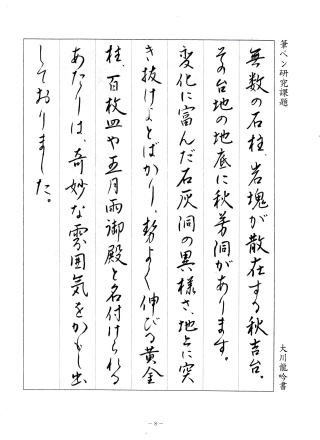 筆ペン研究課題
無数の石柱、岩塊が散在する秋吉台。
その台地の地底に秋芳洞があります。
変化に富んだ石灰洞の異様さ、地上に突
き抜けよとばかり、勢よく伸びる黄金
柱、百枚皿や五月雨御殿と名付けられる
あたりは、奇妙な雰囲気をかもし出
しておりました。
大川龍吟書
－8－